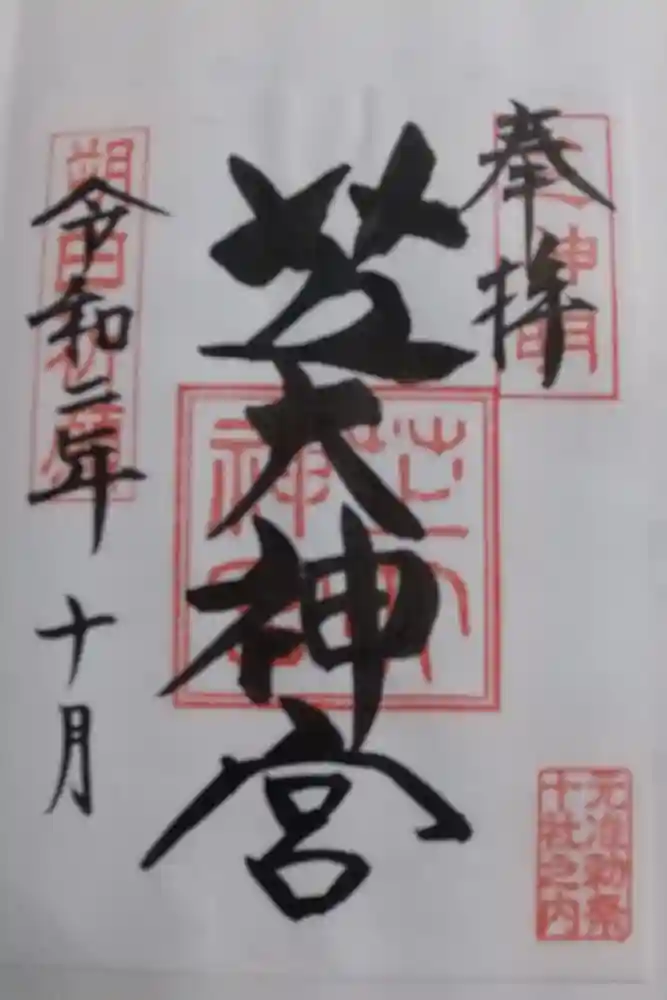 奉拝
芝神明
芝大神宮
芝大
神宮
元准勅祭
十社之内
令和二年 十月
朔日祈願